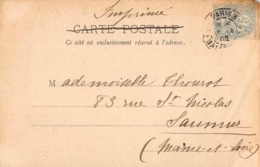 Imprimé
CARTE POSTALE
Ce côté est exclusivement réservé à l'adresse.
M ademoiselle Thourot
83 rue St Nicolas
Saumur
(Maine-et-Loire)